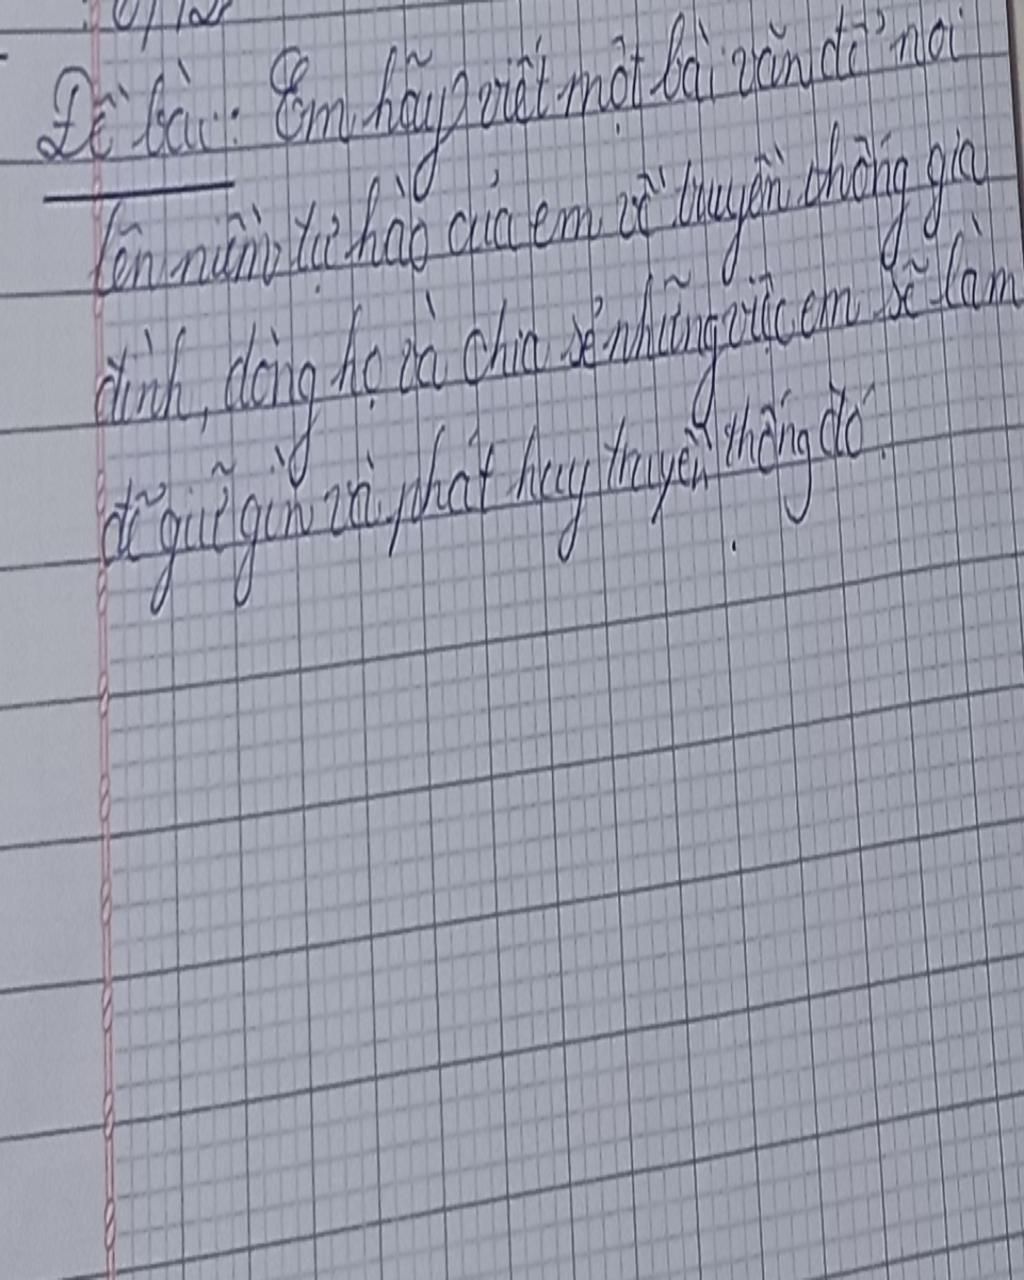 Đề bài: Em hãy viết một bài văn để nói
lên niềm tự hào của em về truyền thống gia
đình, dòng họ và chia sẻ những việc em sẽ làm
để giữ gìn và phát huy truyền thống đó.